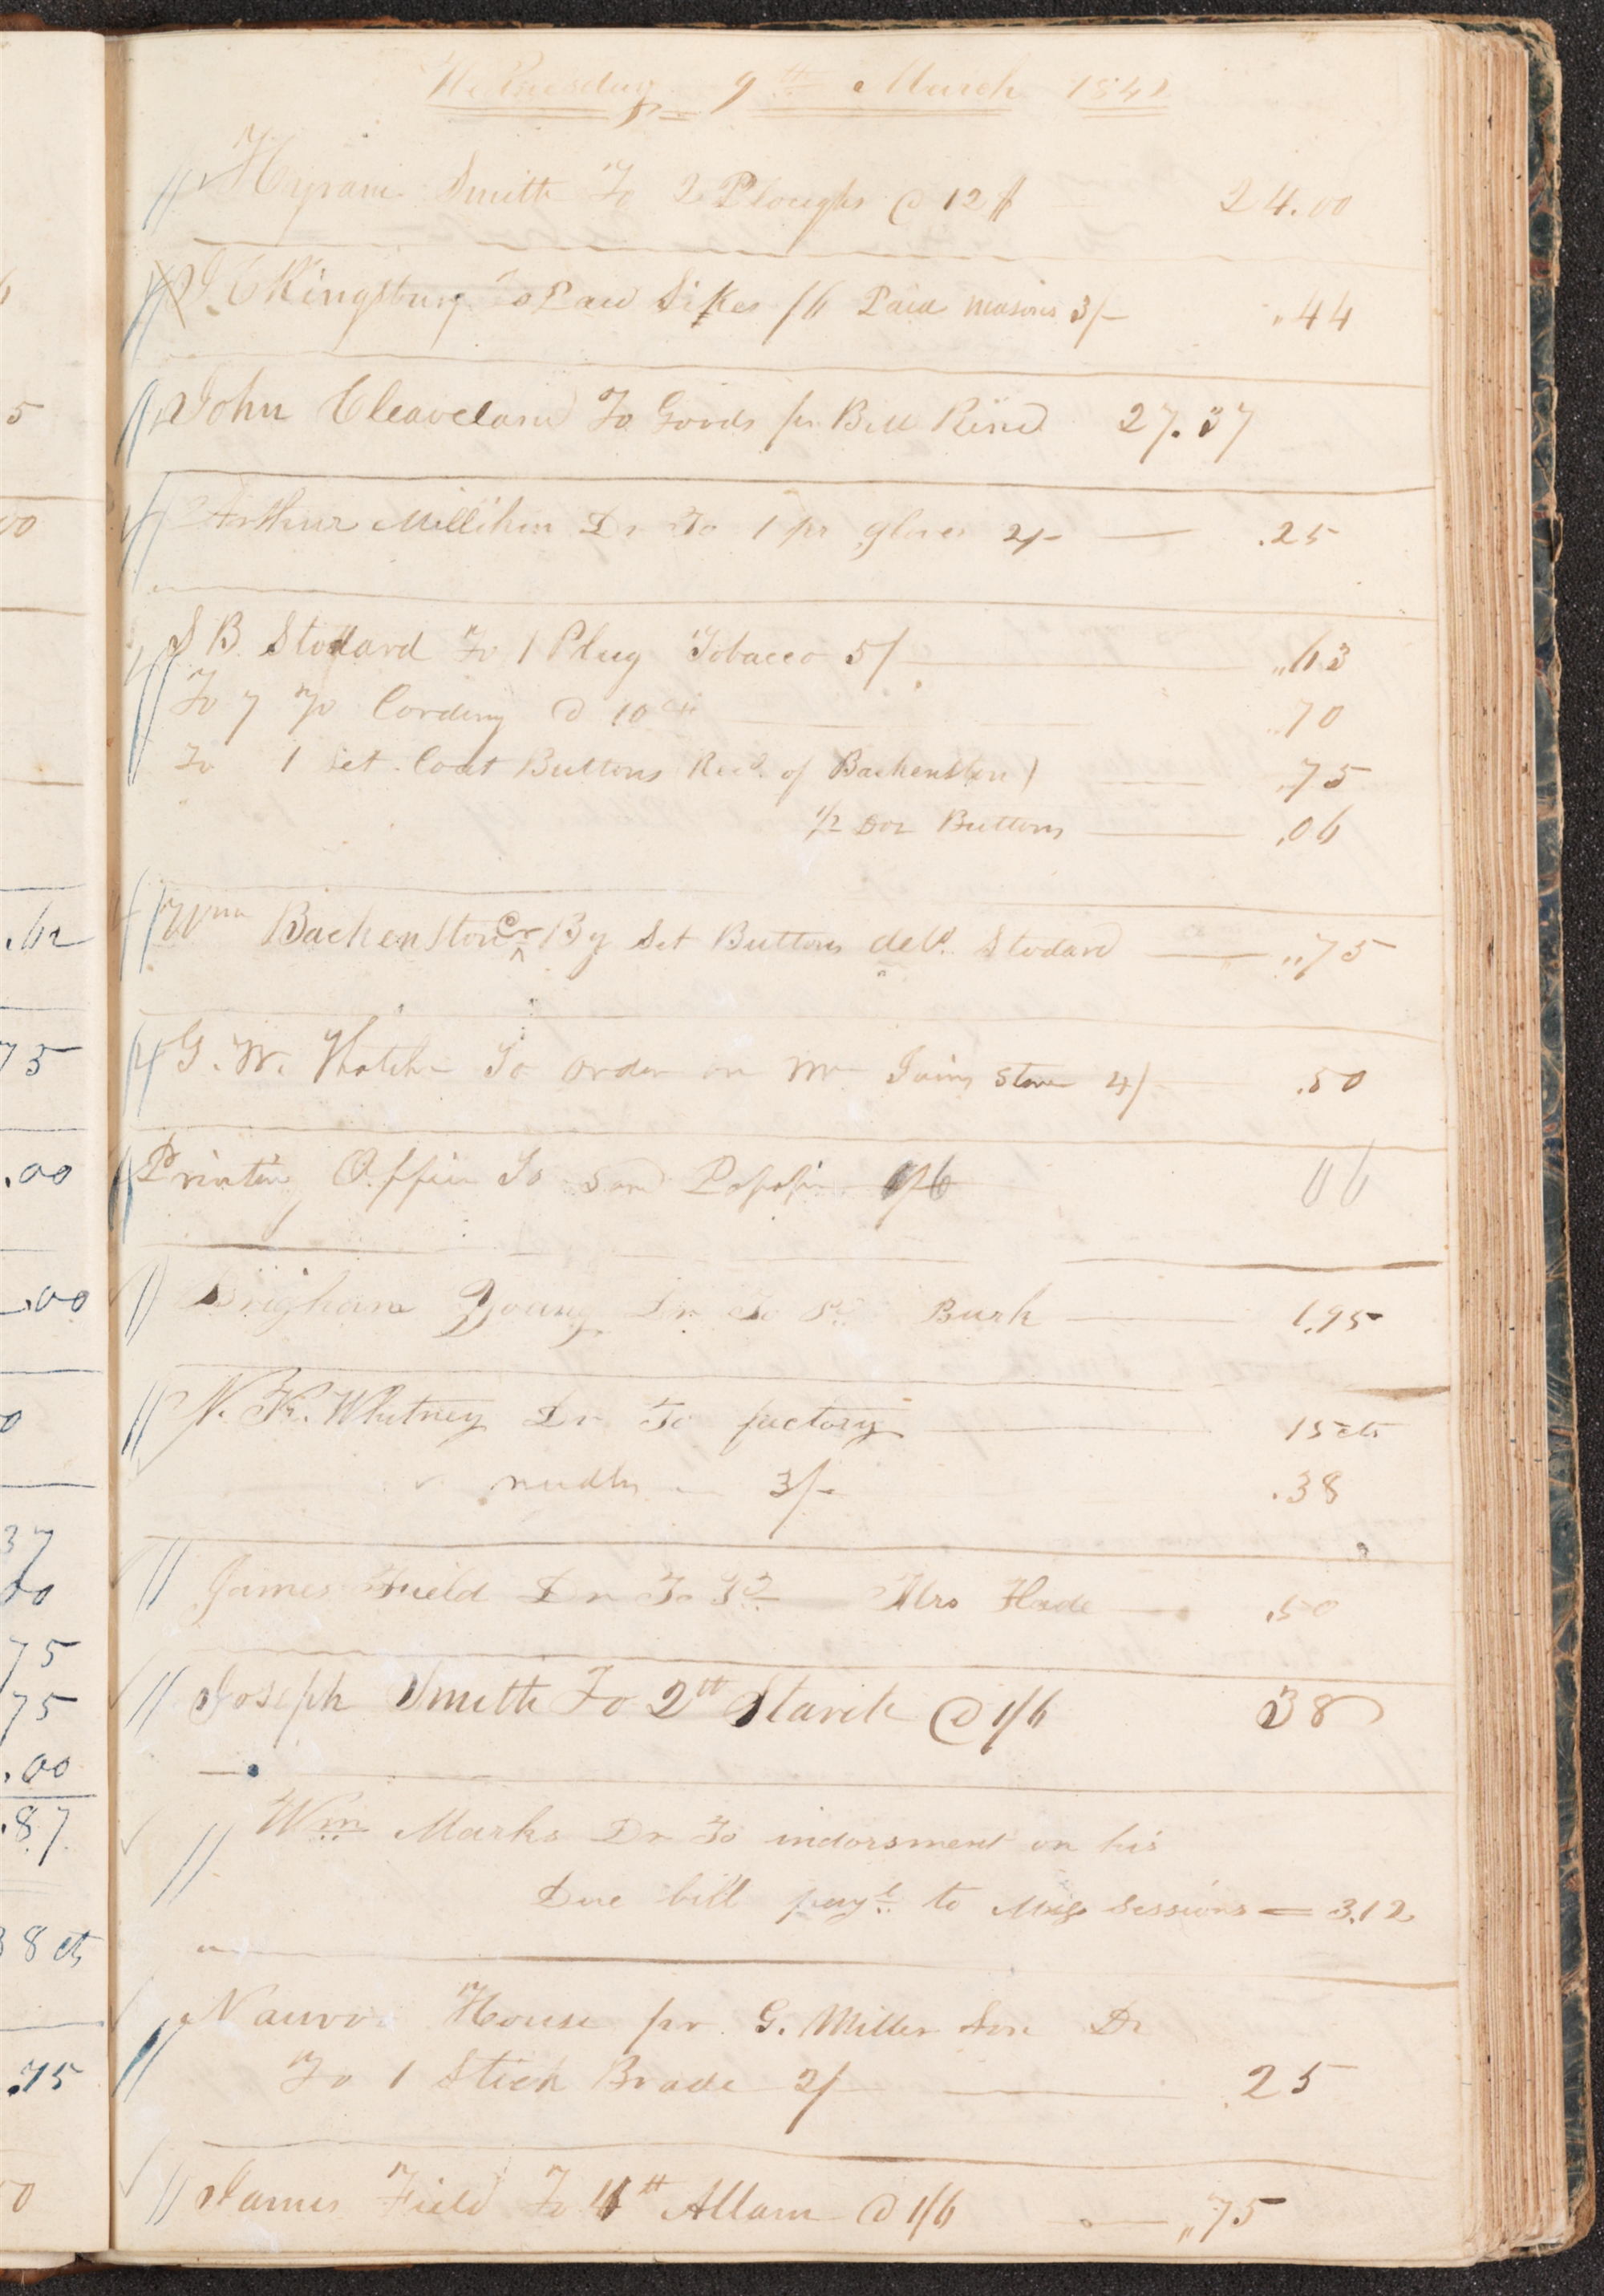 Wednesday 9th March 1842
Hyram Smith To 2 Ploughs @ 12$ 24.00
J C Kingsbury To Paid Sikes /6 Paid masons 3/– .44
John Cleaveland To Goods pr Bill Rend 27.37
Arthur Millikin Dr To 1 pr gloves 2/– .25
S B. Stodard To 1 Plug Tobacco 5/ .63
To 7 yd Cording @ 10 cts .70
To 1 set Coat Buttons Recd. of Backenston) .75
1/2 Doz Buttons .06
Wm Backenstow Cr By Set Buttons deld. Stodard .75
G. W. Thatcher To order on Mr Ivins Store 4/ .50
Printing Office To Sand Paper /6 06
Brigham Young Dr To Burk 1.95
N. K. Whitney Dr To factory 15 cts
" needles 3/– .38
James Field Dr To Mrs Hade .50
Joseph Smith To 2 tt Starch @ 1/6 38
Wm Marks Dr To indorsment on his
Due bill payl. to Miss Sessions = 3.12
Nauvoo House pr G. Miller Son Dr
To 1 Stick Brade 2/ 25
James Field To 4 tt Allam @ 1/6 .75
5
00
.62
75
.00
.00
0
37
00
75
75
.00
.87
38 cts
.75
0